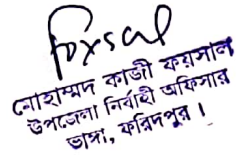 মোহাম্মদ কাজী ফয়সাল
উপজেলা নির্বাহী অফিসার
ভাঙ্গা, ফরিদপুর।